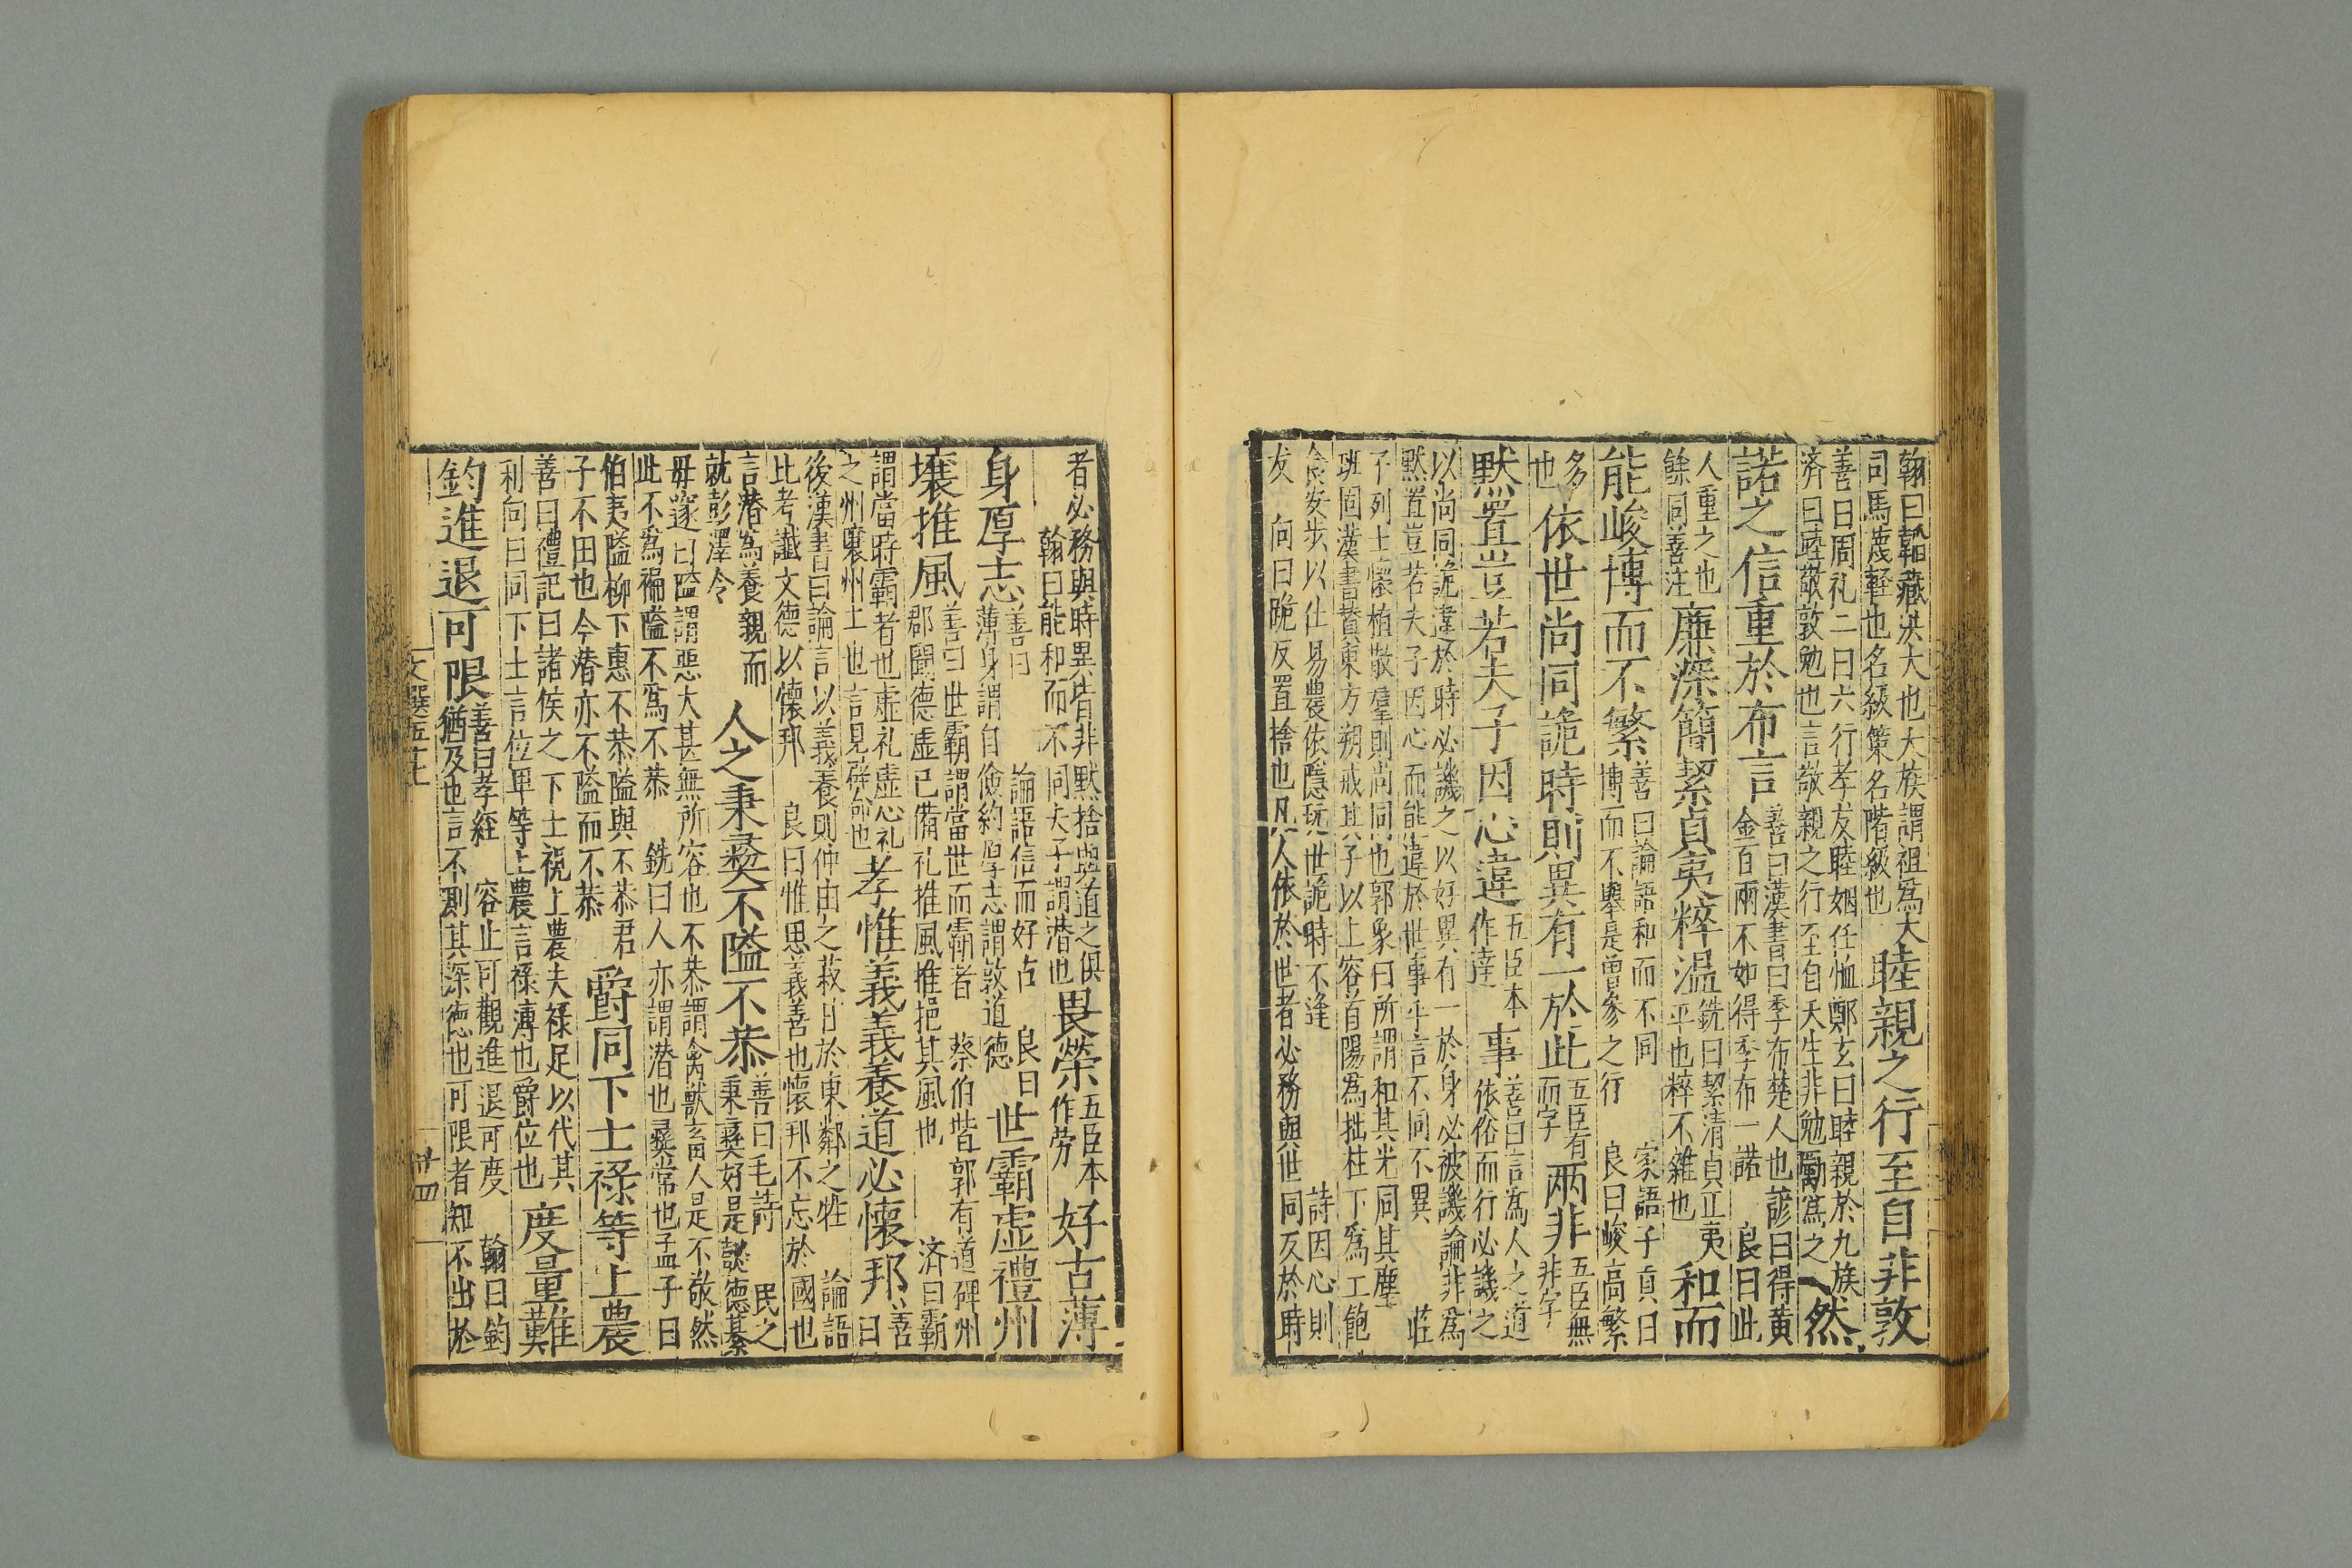 翰曰韜藏洪大也大族謂祖爲大
司馬蔑輕也名級策名階級也
睦親之行至自非敦
善曰周礼二曰六行孝友睦姻任恤鄭玄曰睦親於九族
済曰睦敬敦勉也言敬親之行至自天生非勉勵爲之
然
諾之信重於布言
善曰漢書曰季布楚人也諺曰得黄
金百兩不如得季布一諾 良曰此
人重之也
餘同善注
廉深簡絜貞夷粹温
銑曰絜清貞正夷
平也粹不雜也
和而
能峻博而不繁
善曰論語和而不同 家語子貢曰
博而不舉是曾參之行 良曰峻高繁
多
也
依世尚同詭時則異有一於此
五臣有
而字
兩非
五臣無
非字
默置豈若夫子因心違
五臣本
作達
事
善曰言爲人之道
依俗而行必譏之
以尚同詭違於時必譏之以好異有一於身必被譏論非爲
默置豈若夫子因心而能違於世事乎言不同不異 莊
子列士懷植散羣則尚同也郭象曰所謂和其光同其塵
班固漢書贊東方朔戒其子以上容首陽爲拙柱下爲工飽
食安步以仕易農依隱玩世詭時不逢 詩因心則
友 向曰跪反置捨也凡人依於世者必務與世同反於時
者必務與時異皆非默捨與道之俱
翰曰能和而不同夫子謂潛也
畏榮
五臣本
作勞
好古薄
身厚志
善曰 論語信而好古 良曰
薄身謂自儉約厚志謂敦道德
世霸虛禮州
壤推風
善曰世霸謂當世而霸者 蔡伯喈郭有道碑州
郡聞德虛已備礼推風推挹其風也 済曰霸
謂當時霸者也虛礼虛心礼
之州壤州土也言見辟命也
孝惟義養道必懷邦
善
曰
後漢書曰論言以義養則仲由之菽甘於東鄰之牲 論語
比考讖文德以懷邦 良曰惟思義善也懷邦不忘於國也
言潛爲養親而
就彭澤令
人之秉彝不隘不恭
善曰毛詩 民之
秉彝好是懿德綦
毋邃曰隘謂惡大甚無所容也不恭謂禽獸畜人是不敬然
此不爲褊隘不爲不恭 銑曰人亦謂潛也彝常也孟子曰
伯夷隘柳下惠不恭隘與不恭君
子不田也今潛亦不隘而不恭
爵同下士禄等上農
善曰禮記曰諸侯之下士視上農夫禄足以代其
利向曰同下士言位卑等上農言禄薄也爵位也
度量難
鈞進退可限
善曰孝経 容止可觀進退可度 翰曰鈞
猶及也言不測其深德也可限者知不出於
廿四